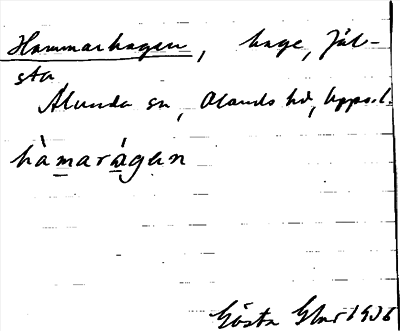 Hammarhagen, hage, Jål-
sta
Alunda sn, Olands hd, Upps. l.
hàmarágen
Gösta